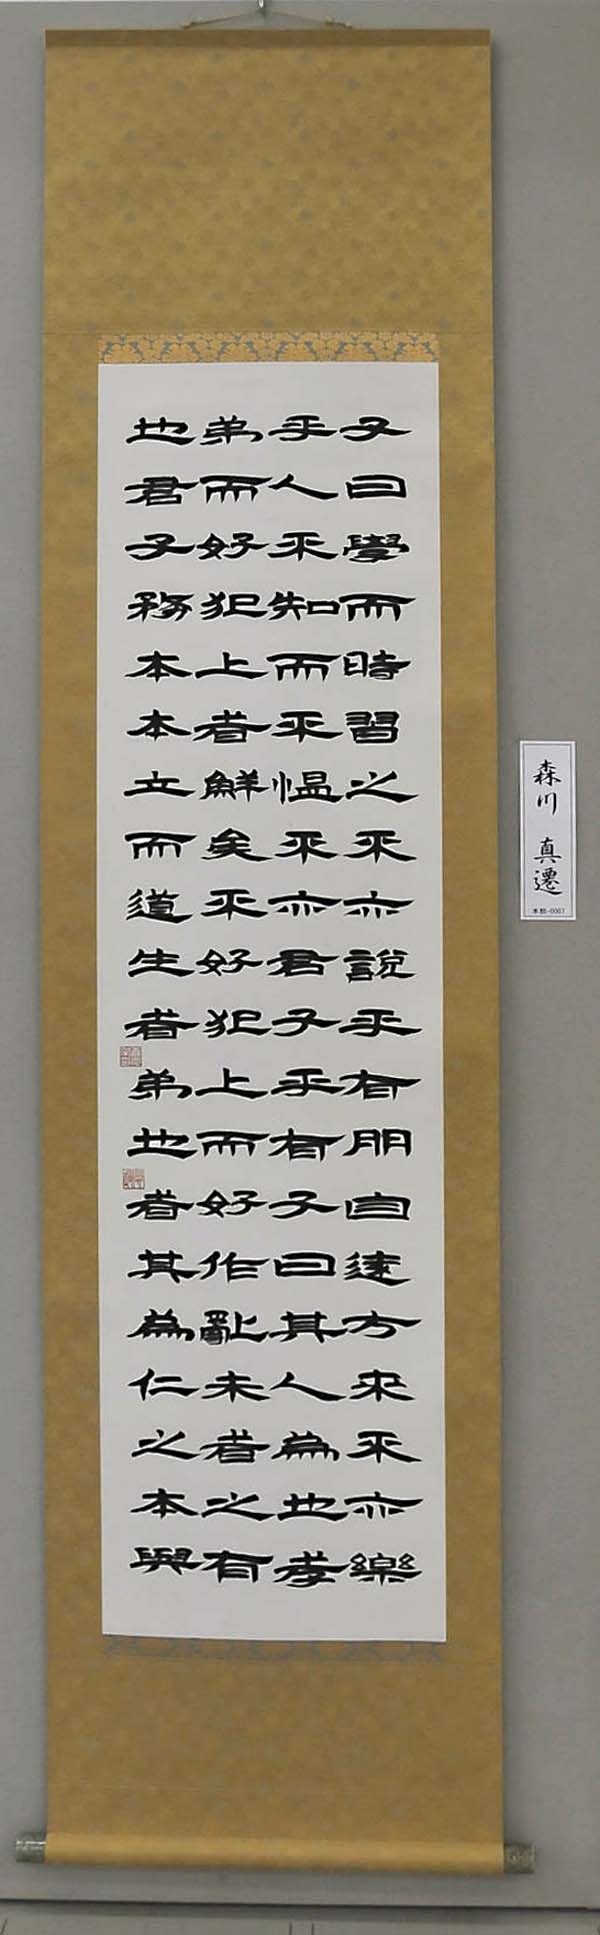 子曰學而時習之不亦説乎有朋自遠方来不亦樂
乎人不知而不愠不亦君子乎有子曰其人為也孝
弟而好犯上者鮮矣不好犯上而好作亂未者之有
也君子務本本立而道生者弟也者其為仁之本與
森川 真遷